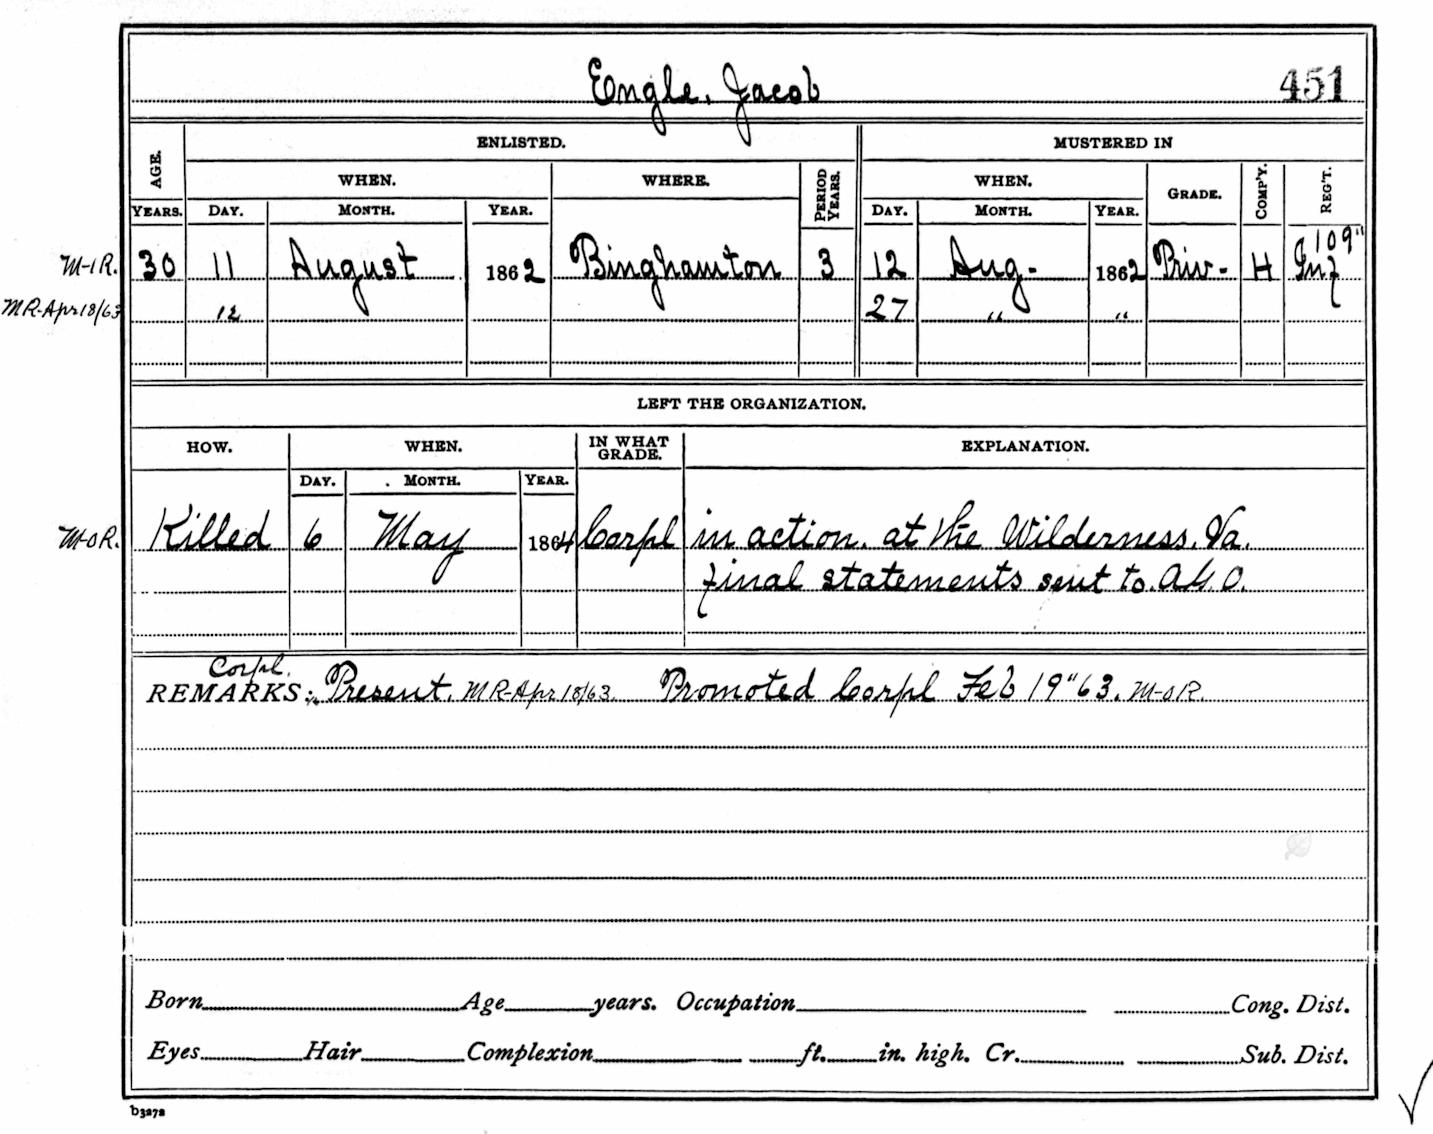 Engle, Jacob 451
ENLISTED. MUSTERED IN
AGE. WHEN. WHERE. PERIOD YEARS. WHEN. GRADE. COMP'Y. REG'T.
YEARS. DAY. MONTH. YEAR. DAY. MONTH. YEAR.
109"
M-I R. 30 11 August 1862 Binghamton 3 12 Aug- 1862 Priv- H Inf
MR-Apr 18/63 12 27 " "
LEFT THE ORGANIZATION.
HOW. WHEN. IN WHAT GRADE. EXPLANATION.
DAY. MONTH. YEAR.
M-O R. Killed 6 May 1864 Corpl in action. at the Wilderness. Va.
final statements sent to. A.G.O.
Corpl.
REMARKS: Present. MR-Apr 18/63. Promoted Corpl Feb 19"63. M-O R.
Born Age years. Occupation Cong. Dist.
Eyes Hair Complexion ft. in. high. Cr. Sub. Dist.
b3272